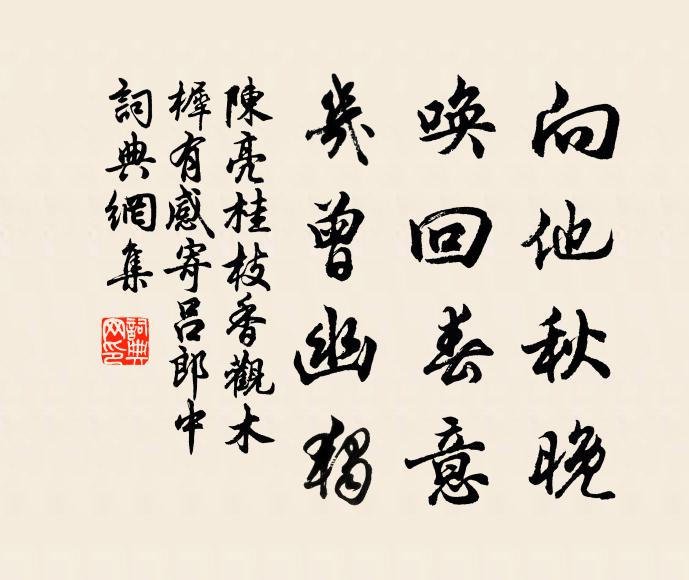 向他秋晚
喚回春意
幾曾幽獨
陳亮桂枝香觀木
樨有感寄呂郎中
詞典網集
詞典網印